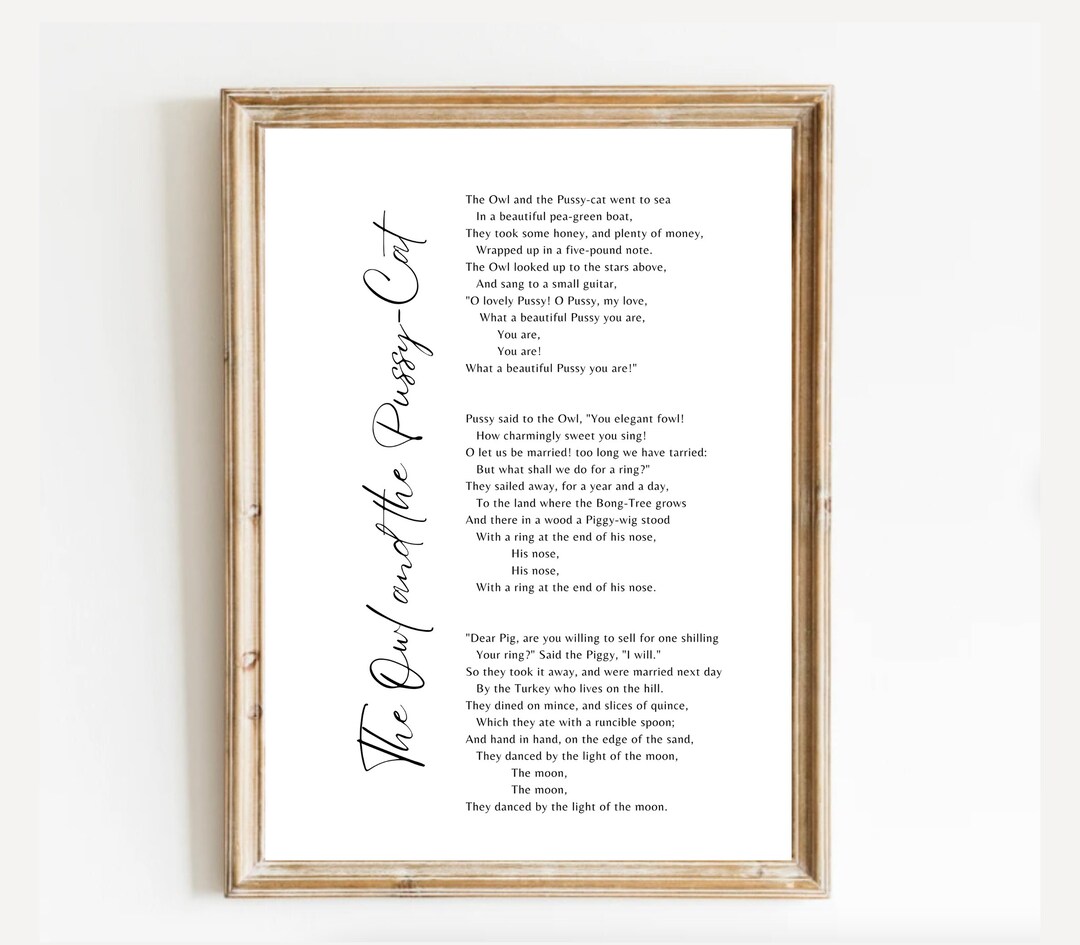 The Owl and the Pussy-Cat
The Owl and the Pussy-cat went to sea
In a beautiful pea-green boat,
They took some honey, and plenty of money,
Wrapped up in a five-pound note.
The Owl looked up to the stars above,
And sang to a small guitar,
"O lovely Pussy! O Pussy, my love,
What a beautiful Pussy you are,
You are,
You are!
What a beautiful Pussy you are!"
Pussy said to the Owl, "You elegant fowl!
How charmingly sweet you sing!
O let us be married! too long we have tarried:
But what shall we do for a ring?"
They sailed away, for a year and a day,
To the land where the Bong-Tree grows
And there in a wood a Piggy-wig stood
With a ring at the end of his nose,
His nose,
His nose,
With a ring at the end of his nose.
"Dear Pig, are you willing to sell for one shilling
Your ring?" Said the Piggy, "I will."
So they took it away, and were married next day
By the Turkey who lives on the hill.
They dined on mince, and slices of quince,
Which they ate with a runcible spoon;
And hand in hand, on the edge of the sand,
They danced by the light of the moon,
The moon,
The moon,
They danced by the light of the moon.